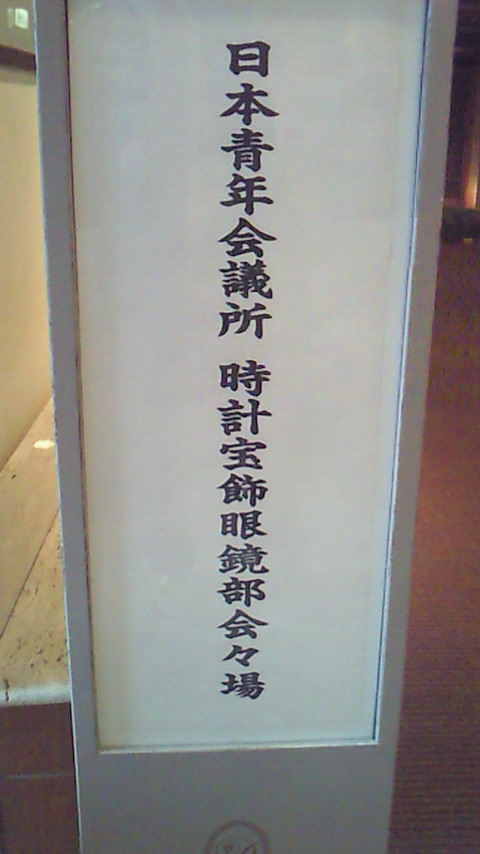 日本青年会議所 時計宝飾眼鏡部会々場